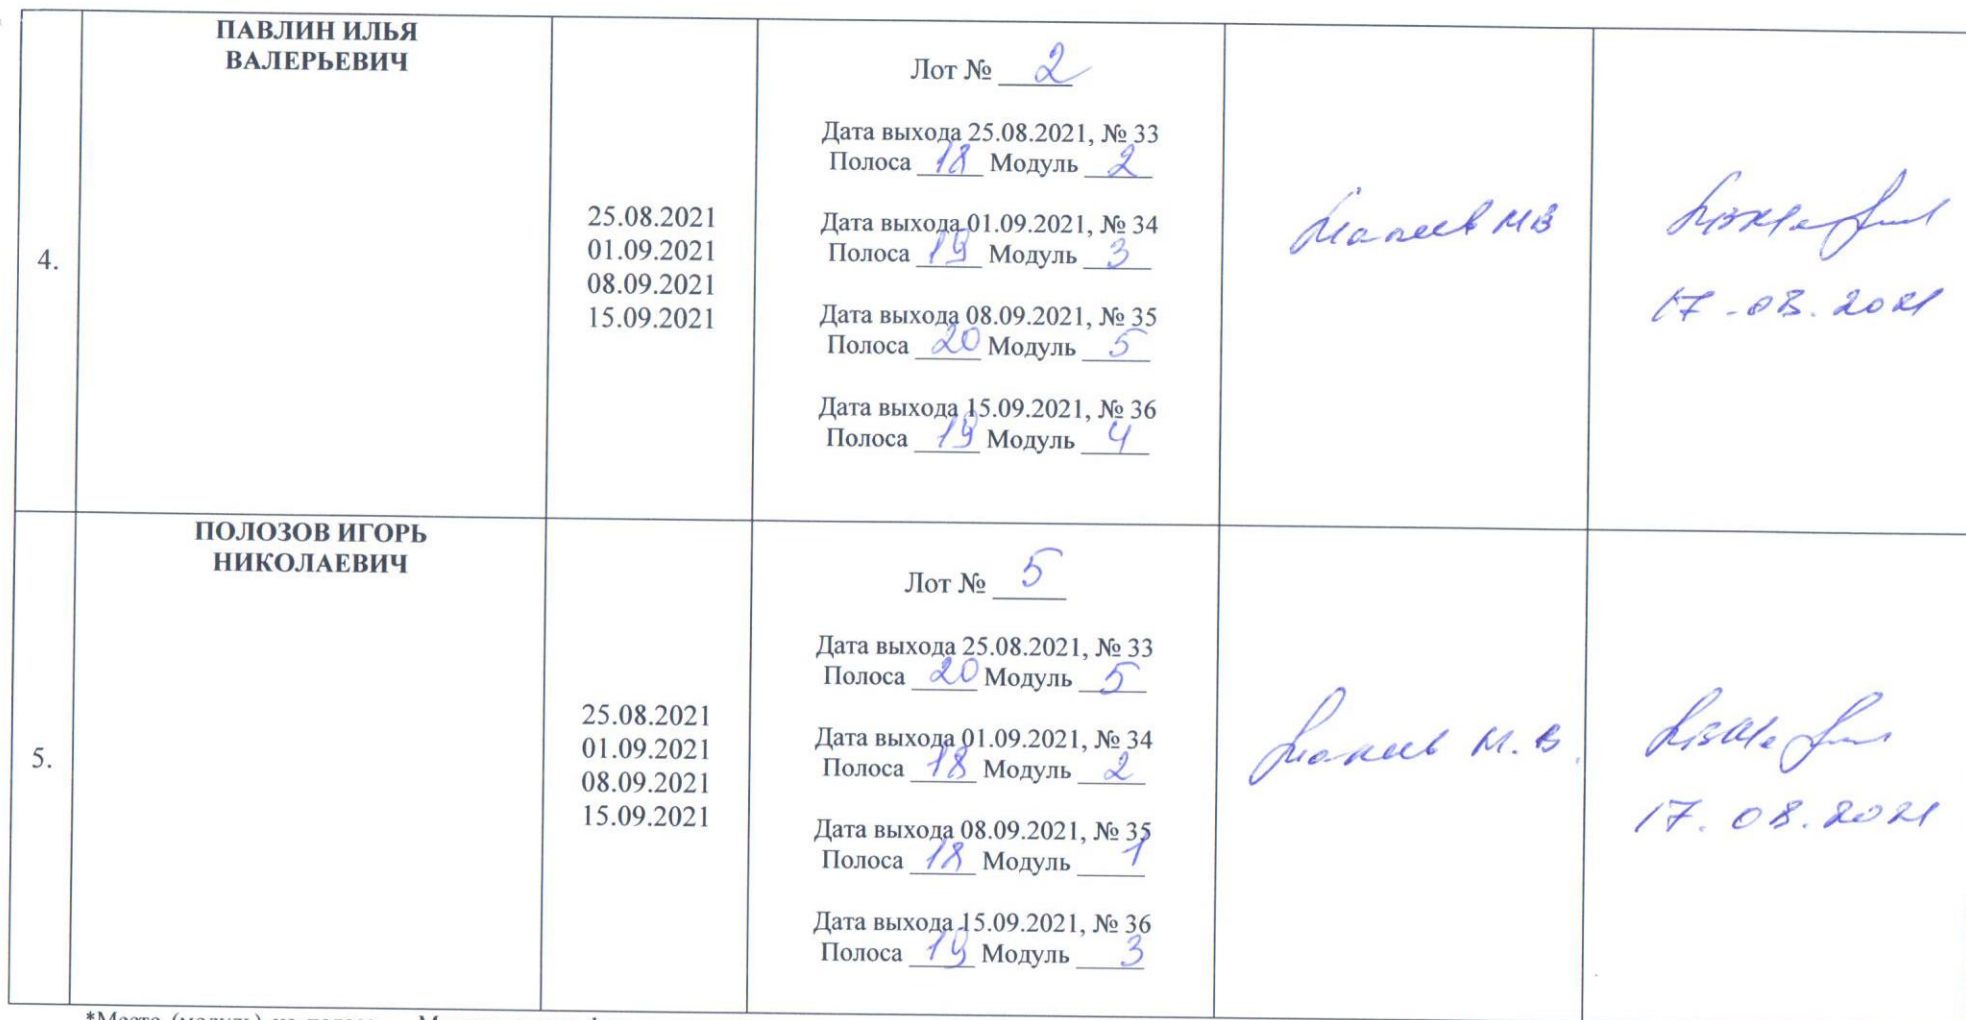 4.
ПАВЛИН ИЛЬЯ
ВАЛЕРЬЕВИЧ
25.08.2021
01.09.2021
08.09.2021
15.09.2021
Лот № 2
Дата выхода 25.08.2021, № 33
Полоса 18 Модуль 2
Дата выхода 01.09.2021, № 34
Полоса 19 Модуль 3
Дата выхода 08.09.2021, № 35
Полоса 20 Модуль 5
Дата выхода 15.09.2021, № 36
Полоса 19 Модуль 4
МВ
17.08.2021
5.
ПОЛОЗОВ ИГОРЬ
НИКОЛАЕВИЧ
25.08.2021
01.09.2021
08.09.2021
15.09.2021
Лот № 5
Дата выхода 25.08.2021, № 33
Полоса 20 Модуль 5
Дата выхода 01.09.2021, № 34
Полоса 18 Модуль 2
Дата выхода 08.09.2021, № 35
Полоса 18 Модуль 1
Дата выхода 15.09.2021, № 36
Полоса 19 Модуль 3
М.В.
17.08.2021
*Место (модуль) на полосе